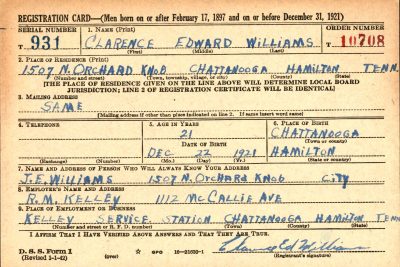 REGISTRATION CARD—(Men born on or after February 17, 1897 and on or before December 31, 1921)
SERIAL NUMBER 1. NAME (Print) ORDER NUMBER
T 931 CLARENCE EDWARD WILLIAMS T 10708
(First) (Middle) (Last)
2. PLACE OF RESIDENCE (Print)
1507 N. ORCHARD KNOB CHATTANOOGA HAMILTON TENN.
(Number and street) (Town, township, village, or city) (County) (State)
[THE PLACE OF RESIDENCE GIVEN ON THE LINE ABOVE WILL DETERMINE LOCAL BOARD
JURISDICTION; LINE 2 OF REGISTRATION CERTIFICATE WILL BE IDENTICAL]
3. MAILING ADDRESS
SAME
[Mailing address if other than place indicated on line 2. If same insert word same]
4. TELEPHONE 5. AGE IN YEARS 6. PLACE OF BIRTH
21 CHATTANOOGA
DATE OF BIRTH (Town or county)
DEC 22 1921 HAMILTON
(Exchange) (Number) (Mo.) (Day) (Yr.) (State or country)
7. NAME AND ADDRESS OF PERSON WHO WILL ALWAYS KNOW YOUR ADDRESS
J.E. WILLIAMS 1507 N. ORCHARD KNOB CITY
8. EMPLOYER'S NAME AND ADDRESS
R.M. KELLEY 1112 MCCALLIE AVE
9. PLACE OF EMPLOYMENT OR BUSINESS
KELLEY SERVICE STATION CHATTANOOGA HAMILTON TENN
(Number and street or R. F. D. number) (Town) (County) (State)
I AFFIRM THAT I HAVE VERIFIED ABOVE ANSWERS AND THAT THEY ARE TRUE.
D. S. S. Form 1
(Revised 1-1-42) GPO 16-21630-1 (Registrant's signature)